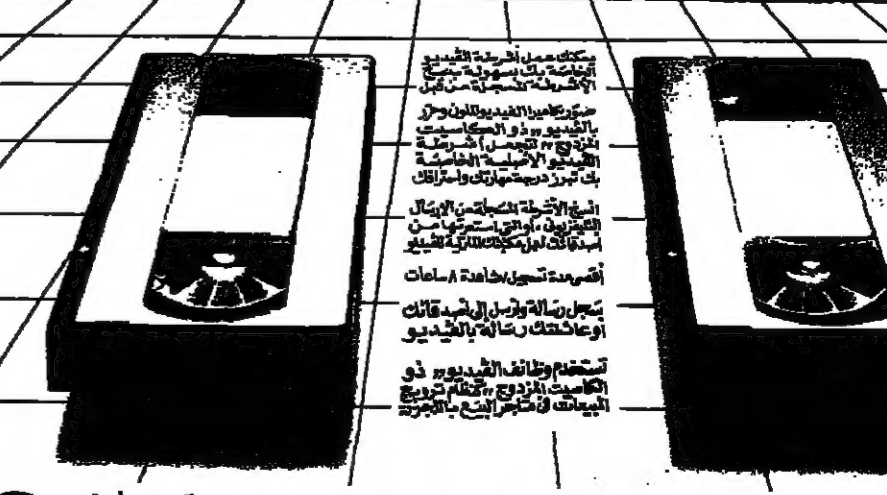 يمكنك عمل أشرطة الڤيديو
الخاصة بك بسهولة بنسخ
الأشرطة المسجلة من قبل
صوّر بكاميرا الڤيديو الملون وحرّر
بالڤيديو „ذو الكاسيت
المزدوج" لتجعل أشرطة
الڤيديو الأصلية الخاصة
بك تبرز درجة مهارتك واحترافك
انسخ الأشرطة المسجلة من الإرسال
التليفزيوني، أو التي استعرتها من
أصدقائك لعمل مكتبتك المنزلية للڤيديو
أقصى مدة تسجيل/مشاهدة ٨ ساعات
سجل رسالة وأرسل إلى أصدقائك
أو عائلتك رسالة بالڤيديو
تستخدم وظائف الڤيديو „ذو
الكاسيت المزدوج" كنظام ترويج
المبيعات في متاجر البيع